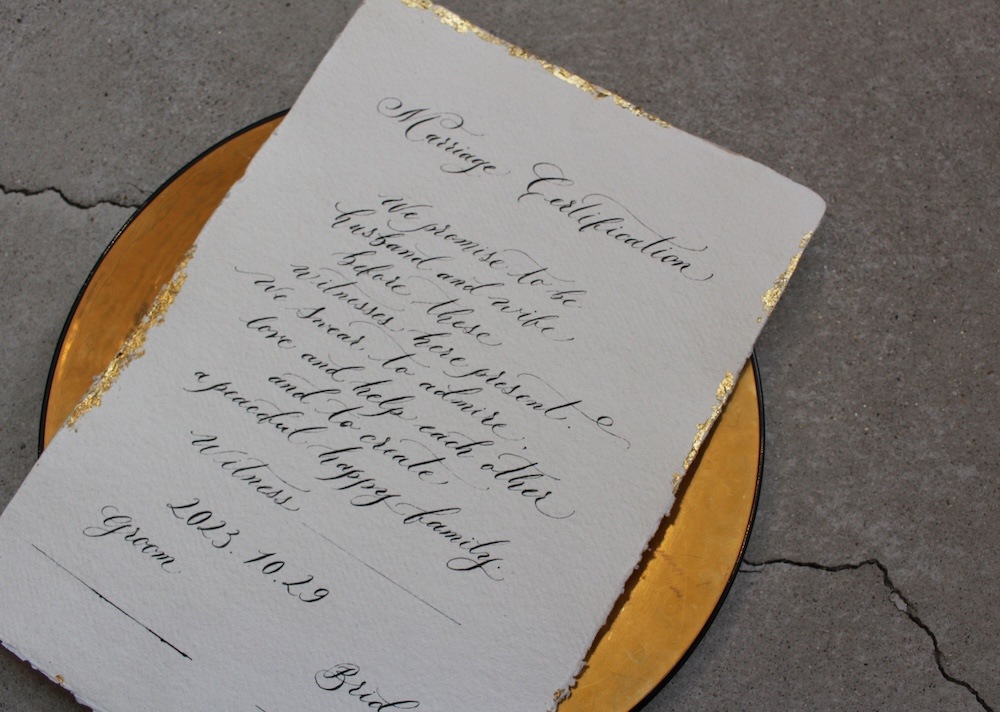 Marriage Certification
We promise to be
husband and wife
before these
witnesses here present.
We swear, to admire,
love and help each other
and to create
a peaceful happy family.
Witness
2023.10.29
Groom
Brid